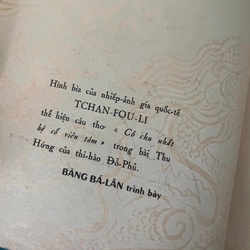 Hình bìa của nhiếp-ảnh gia quốc-tế
TCHAN-FOU-LI
thể hiện câu thơ « Cô chu nhất
hệ cố viên tâm » trong bài Thu
Hứng của thi-hào Đỗ-Phủ.
BÀNG BÁ-LÂN trình bày